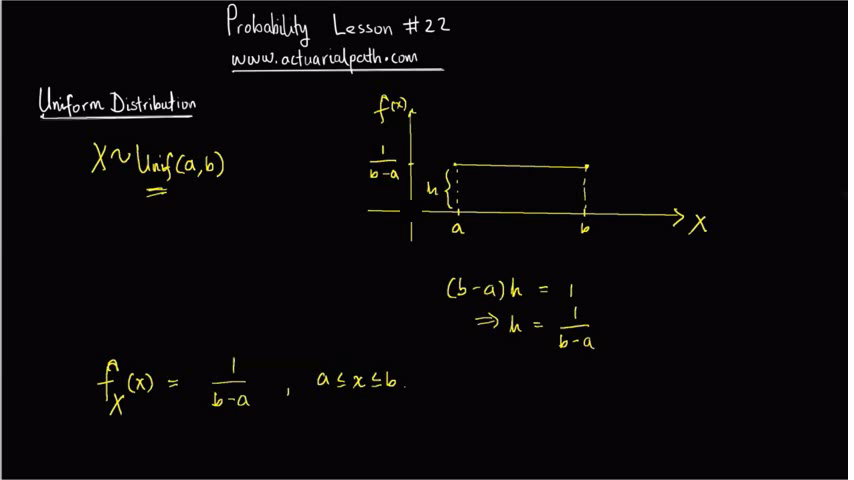 Probability Lesson #22
www.actuarialpath.com
Uniform Distribution
X ~ Unif(a,b)
f(x)
1/(b-a)
h {
a b
X
(b-a)h = 1
⇒ h = 1/(b-a)
f_X(x) = 1/(b-a) , a ≤ x ≤ b.